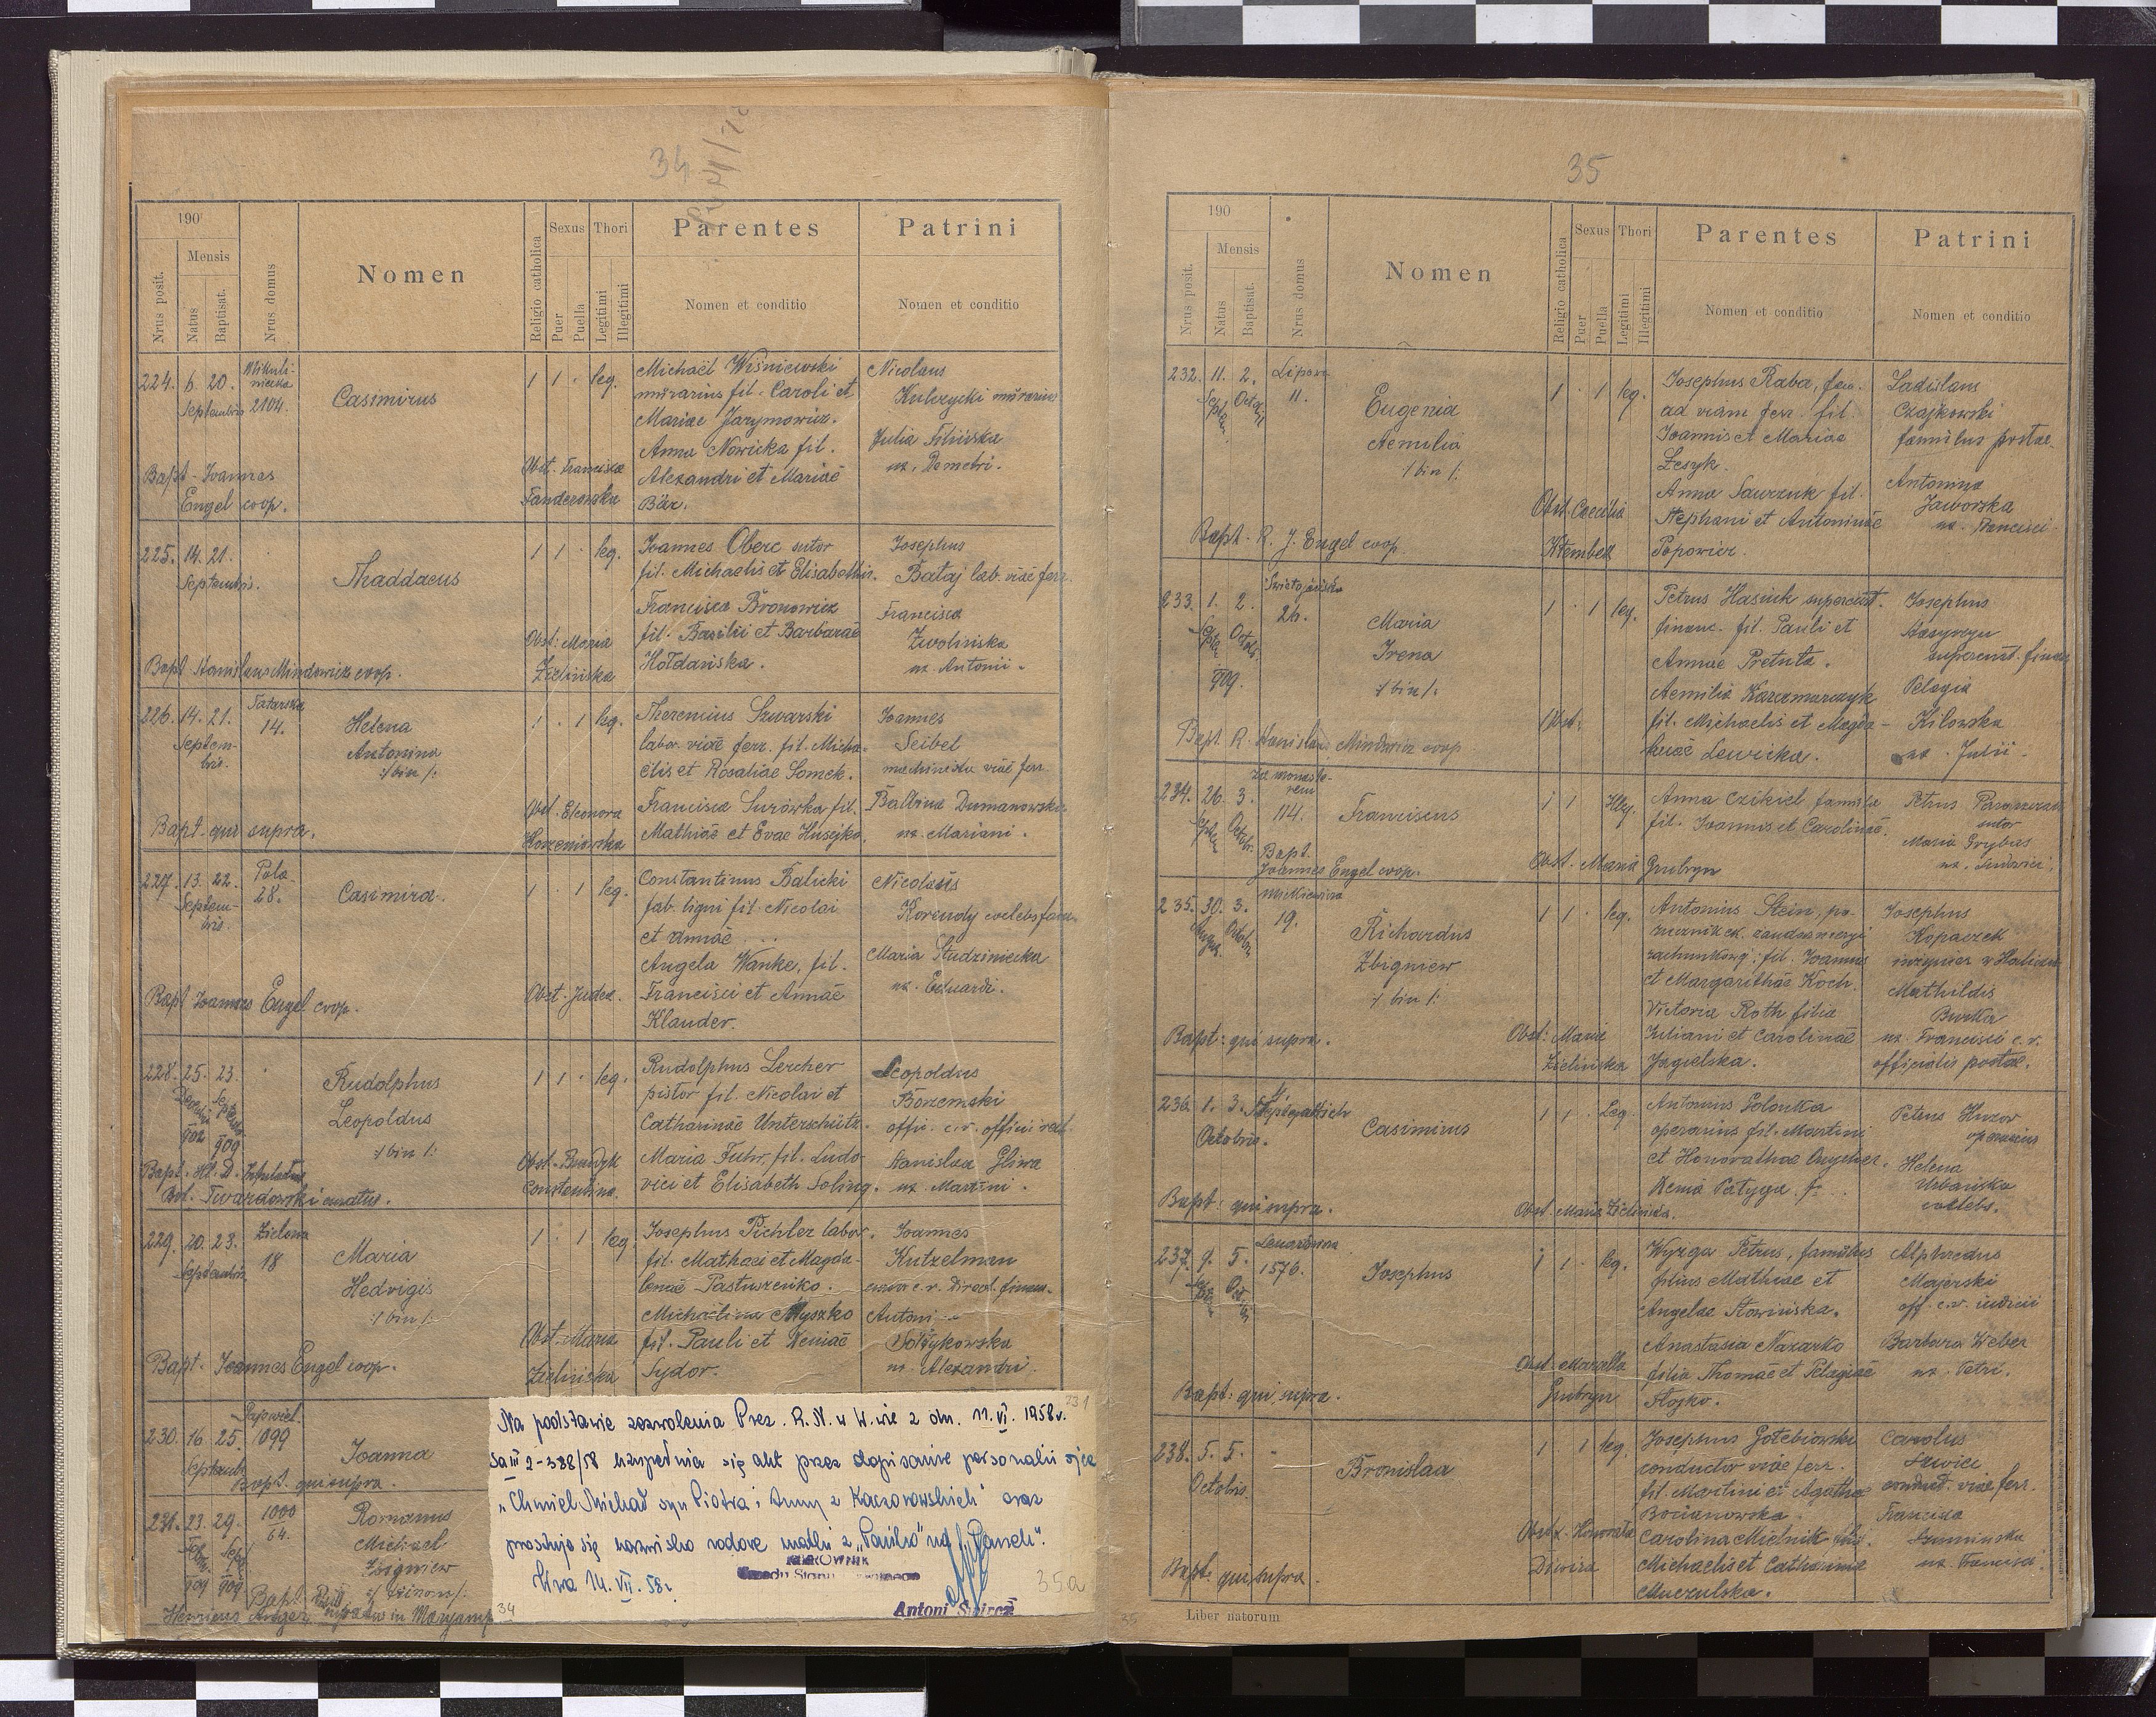 34
190
Nrus posit.
Mensis
Natus
Baptisat.
Nrus domus
Nomen
Religio catholica
Sexus
Puer
Puella
Thori
Legitimi
Illegitimi
Parentes
Nomen et conditio
Patrini
Nomen et conditio
224. 6. 20. Septembris 2104.
Casimirus
1 1 · leg.
Michaël Wiśniewski
murarius fil. Caroli et
Mariae Jarymowicz.
Anna Nowicka fil.
Alexandri et Mariae
Bär.
Nicolaus
Kulczycki murarius
Julia
ux. Demetri.
Obst. Francisca
Bapt. Joannes
Engel coop.
225. 14. 21.
Septembris.
Thaddaeus
1 1 · leg.
Joannes Oberc sutor
fil. Michaelis et Elisabethis.
Francisca Bronowicz
fil. Basilii et Barbarae
Hołdańska.
Josephus
Bataj lab. viae ferr.
Francisca
Zwolińska
ux. Antonii.
Obst: Maria
Zielińska
Bapt Stanislaus Mindowicz coop.
226. 14. 21. Tatarska
14.
Septembris.
Helena
Antonina
:/bin/:
1 · 1 leg.
labor. viae ferr. fil. Michaelis
et Rosaliae Somek.
Francisca Surówka fil.
Mathiae et Evae
Joannes
Seibel
machinista viae ferr.
Balbina Dumanowska
ux. Mariani.
Obst. Eleonora
Bapt. qui supra.
227. 13. 22. Pola
28.
Septembris
Casimira.
1 · 1 leg.
Constantinus Balicki
fab. ligni fil. Nicolai
et Annae ...
Angela Wanke, fil.
Francisci et Annae
Klauder.
Nicolaus
Maria Studzinicka
ux. Eduardi.
Obst. Judex.
Bapt Joannes Engel coop.
228. 25. 23.
902 909
Rudolphus
Leopoldus
:/bin/:
1 1 · leg.
Rudolphus Lercher
pistor fil. Nicolai et
Catharinae Unterschütz.
Maria Fuhr, fil. Ludovici
et Elisabeth Soling.
Leopoldus
Borzemski
Stanislaa Gliwa
ux. Martini.
Constantina.
Twardowski curatus.
229. 20. 23. Zielona
18
Septembris
Maria
Hedvigis
:/bin/:
1 · 1 leg.
Josephus Pichler labor.
fil. Mathaei et Magdalenae
Pastuszenko.
Michaelina Myszko
fil. Pauli et Xeniae
Sydor.
Joannes
Kutzelman
Antoni
Sołtykowska
ux. Alexandri.
Obst. Maria
Zielińska
Bapt. Joannes Engel coop.
230. 16. 25. 1099
Joanna
Bapt. qui supra.
231. 23. 29. 1000
64.
909 909
Romanus
Michael
Zbigniew
:/trinom/:
231
Na podstawie zezwolenia Prez. R. N. w W.wie z dn. 11.VI.1958r.
Sa III 2-338/58 uzupełnia się akt przez dopisanie personalii ojca
„Chmiel Michał syn Piotra i Anny z Kaczorowskich" oraz
prostuje się nazwisko rodowe matki z
14. VII. 58r
KIEROWNIK
Antoni
35a
34
35
190
Nrus posit.
Mensis
Natus
Baptisat.
Nrus domus
Nomen
Religio catholica
Sexus
Puer
Puella
Thori
Legitimi
Illegitimi
Parentes
Nomen et conditio
Patrini
Nomen et conditio
232. 11. 2. Lipowa
11.
Eugenia
Aemilia
:/bin/:
1 · 1 leg.
Josephus Raba, fam.
ad viam ferr. fil.
Joannis et Mariae
Lesyk.
Anna Sawczuk fil.
Stephani et Antoninae
Popowicz.
Ladislaus
Czajkowski
famulus postae.
Antonina
Jaworska
ux. Francisci.
Obst. Caecilia
Bapt. R. J. Engel coop.
233. 1. 2. Świętojańska
24.
909.
Maria
Irena
:/bin/:
1 · 1 leg.
Petrus Hasiuk supercust.
financ. fil. Pauli et
Annae Pretuła.
Aemilia Karczmarczyk
fil. Michaelis et Magdalenae
Lewicka.
Josephus
supercust. finan
Pelagia
Kilowska
ux. Julii.
Obst:
Bapt. R. Stanislaus Mindowicz coop
234. 26. 3.
114.
Franciscus
1 1 Illeg.
Anna Czikiel famula
fil. Joannis et Carolinae.
Petrus
sutor
Maria Grybas
ux. Ludovici.
Bapt.
Joannes Engel coop.
Obst. Maria Grubryn
235. 30. 3. Mickiewicza
19.
Richardus
Zbigniew
:/bin/:
1 1 · leg.
Antonius Stein,
rachunkowej: fil. Joannis
et Margarithae Koch.
Victoria Roth filia
Juliani et Carolinae
Jagielska.
Josephus
Kopaczek
inżynier w Haliczu
Mathildis
Burka
ux. Francisci c. r.
officialis postae.
Obst: Maria
Zielińska
Bapt: qui supra.
236. 1. 3.
Octobris.
Casimirus
1 1 · Leg.
Antonius Golonka
operarius fil. Martini
et Honorathae
Xenia Patyga f. ..
Petrus Huzar
operarius
Helena
Urbańska
coelebs.
Bapt: qui supra.
Obst. Maria Zielińska.
237. 9. 5.
1576.
Josephus
1 1 · leg.
Wyzga Petrus, famulus
filius Mathiae et
Angelae Słowińska.
Anastasia Nazarko
filia Thomae et Pelagiae
Stojko.
Alphredus
Majerski
off. c.r. iudicii
Barbara Weber
ux. Petri.
Obst. Marcella
Grubryn
Bapt: qui supra.
238. 5. 5. "
Octobris.
Bronislaa
1 · 1 leg.
Josephus Gołebiowski
conductor viae ferr.
fil. Martini et Agathae
Bocianowska.
Carolina Mielnik fil.
Michaelis et Catharinae
Muczulska.
Carolus
conduct. viae ferr.
Francisca
Szumińska
ux. Francisci
Obst. Honorata
Bapt. qui supra.
35
Liber natorum